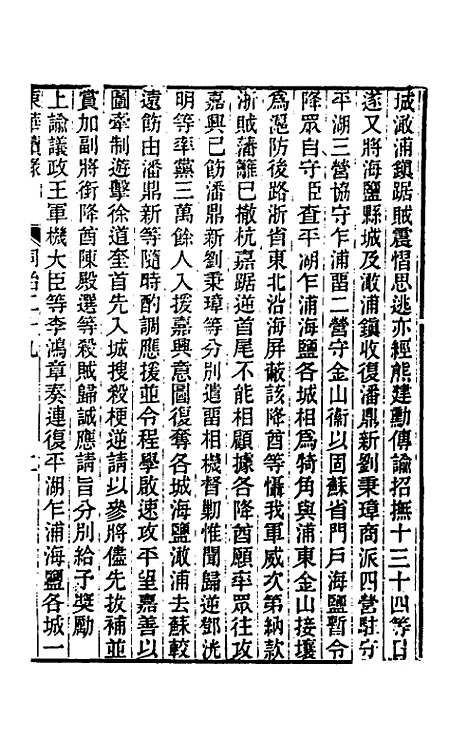 城澉浦鎮踞賊震慴思逃亦經熊建勳傳諭招撫十三十四等日
遂又將海鹽縣城及澉浦鎮收復潘鼎新劉秉璋商派四營駐守
平湖三營協守乍浦留二營守金山衞以固蘇省門戶海鹽暫令
降眾自守臣查平湖乍浦海鹽各城相爲犄角與浦東金山接壤
爲滬防後路浙省東北沿海屏蔽該降酋等懾我軍威次第納款
浙賊藩籬已撤杭嘉踞逆首尾不能相顧據各降酋願率眾往攻
嘉興已飭潘鼎新劉秉璋等分別遣留相機督勦惟聞歸逆鄧洸
明等率黨三萬餘人入援嘉興意圖復奪各城海鹽澉浦去蘇較
遠飭由潘鼎新等隨時酌調應援並令程學啟速攻平望嘉善以
圖牽制遊擊徐道奎首先入城搜殺梗逆請以參將儘先拔補並
賞加副將銜降酋陳殿選等殺賊歸誠應請旨分別給予獎勵
上諭議政王軍機大臣等李鴻章奏連復平湖乍浦海鹽各城一
東華續錄 同治二十九